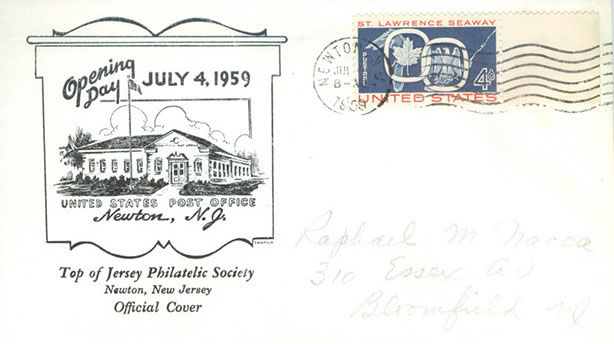 Opening Day JULY 4, 1959
UNITED STATES POST OFFICE
Newton, N.J.
Top of Jersey Philatelic Society
Newton, New Jersey
Official Cover
ST. LAWRENCE SEAWAY
POSTAGE
4¢
UNITED STATES
NEWTON
JUL
8-AM
1959
Raphael M Nacca
310 Essex Av
Bloomfield NJ